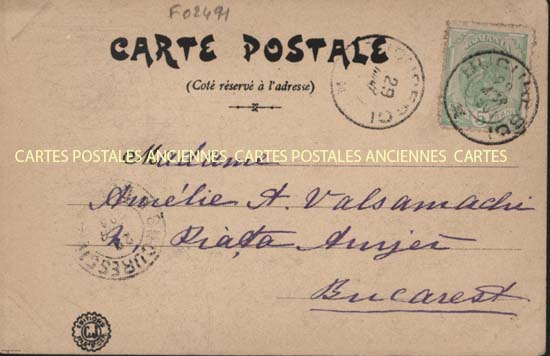 F02491
CARTE POSTALE
(Coté réservé à l'adresse)
29
CARTES POSTALES ANCIENNES CARTES POSTALES ANCIENNES CARTES
Madame
Amélie A. Valsamachi
Piaţa Amzei
Bucarest